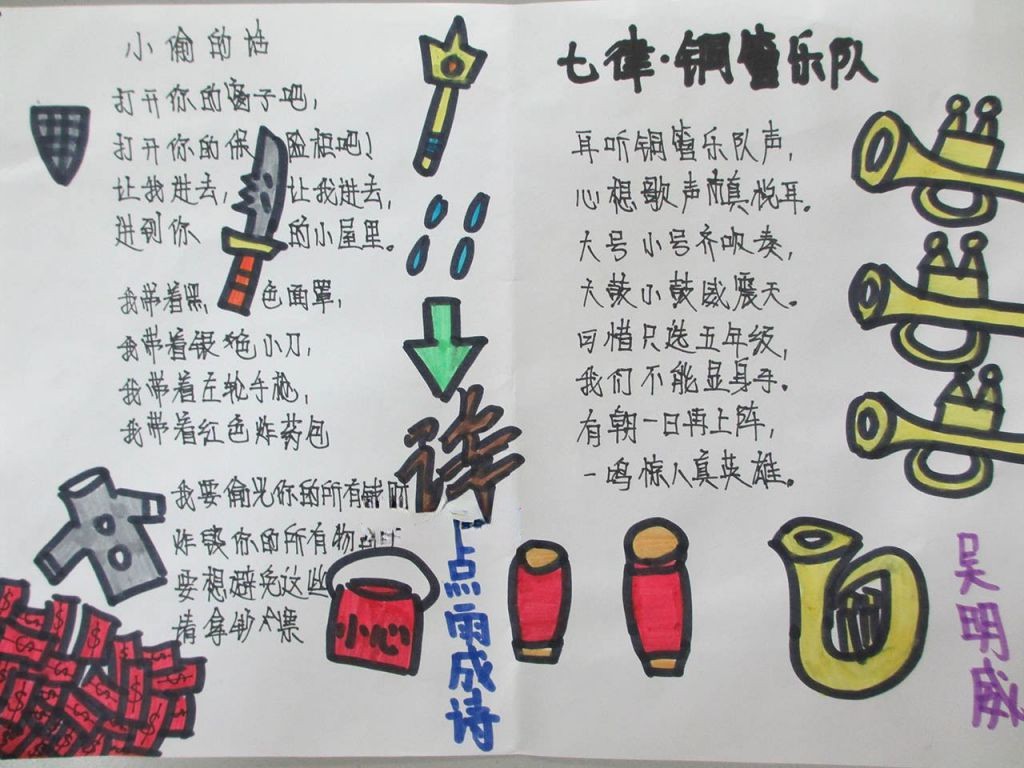 小偷的话
打开你的窗子吧，
打开你的保险柜吧！
让我进去，让我进去，
进到你的小屋里。
我带着黑色面罩，
我带着银色小刀，
我带着左轮手枪，
我带着红色炸药包
我要偷光你的所有钱财
炸毁你的所有物
要想避免这些
请拿钞票
小心
点雨成诗
七律·铜管乐队
耳听铜管乐队声，
心想歌声真悦耳。
大号小号齐吹奏，
大鼓小鼓威震天。
可惜只选五年级，
我们不能显身手。
有朝一日再上阵，
一鸣惊人真英雄。
吴明威